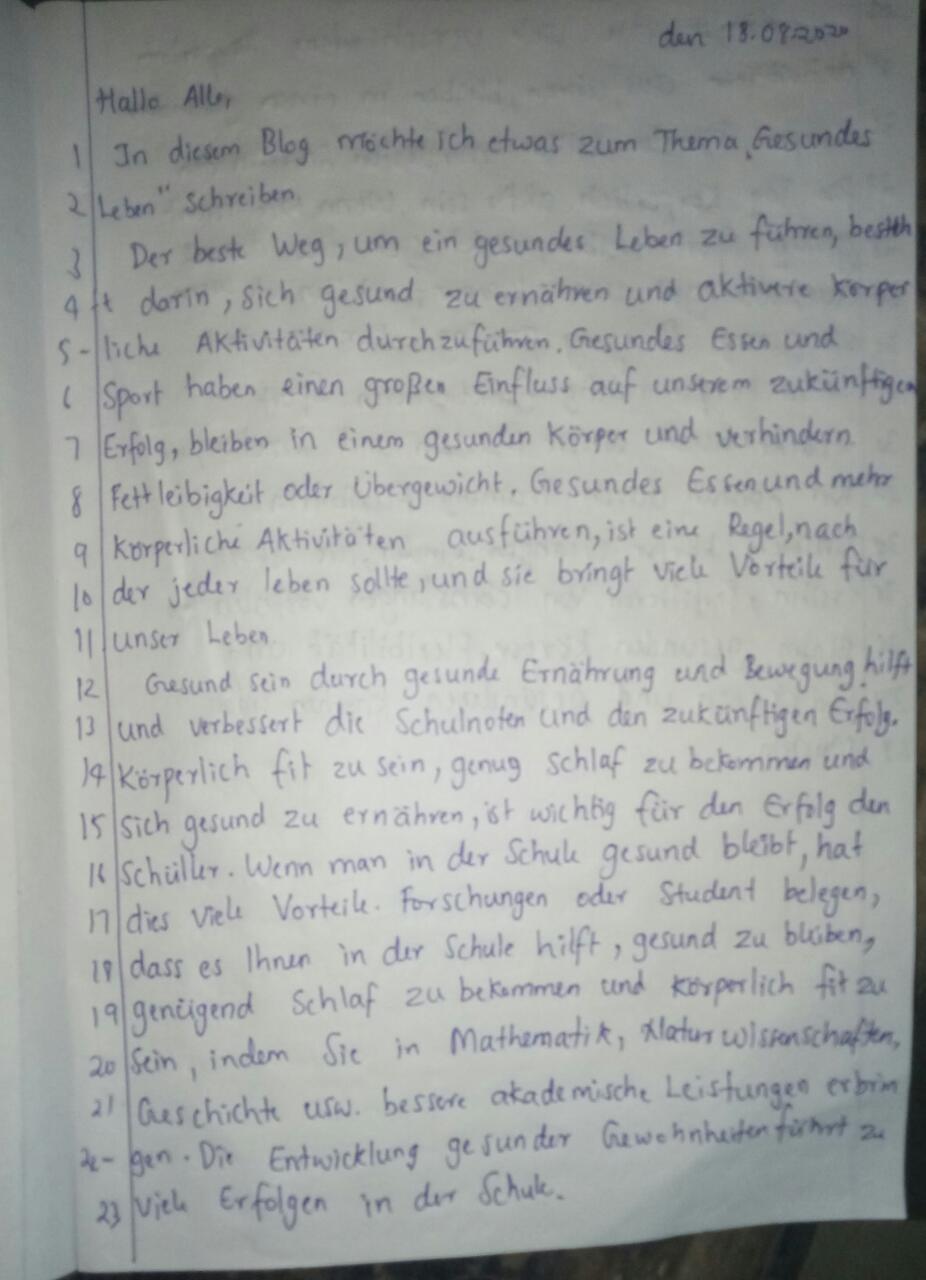 den 18.09.2020
Hallo Alle,
1 In diesem Blog möchte ich etwas zum Thema „Gesundes
2 Leben" schreiben.
3 Der beste Weg, um ein gesundes Leben zu führen, besteh
4 t darin, sich gesund zu ernähren und aktivere körper
5 - liche Aktivitäten durchzuführen. Gesundes Essen und
6 Sport haben einen großen Einfluss auf unserem zukünftigen
7 Erfolg, bleiben in einem gesunden Körper und verhindern
8 Fettleibigkeit oder Übergewicht. Gesundes Essen und mehr
9 körperliche Aktivitäten ausführen, ist eine Regel, nach
10 der jeder leben sollte, und sie bringt viele Vorteile für
11 unser Leben.
12 Gesund sein durch gesunde Ernährung und Bewegung hilft
13 und verbessert die Schulnoten und den zukünftigen Erfolg.
14 Körperlich fit zu sein, genug Schlaf zu bekommen und
15 sich gesund zu ernähren, ist wichtig für den Erfolg den
16 Schüller. Wenn man in der Schule gesund bleibt, hat
17 dies viele Vorteile. Forschungen oder Student belegen,
18 dass es Ihnen in der Schule hilft, gesund zu bleiben,
19 genügend Schlaf zu bekommen und körperlich fit zu
20 sein, indem Sie in Mathematik, Naturwissenschaften,
21 Geschichte usw. bessere akademische Leistungen erbrin
22 - gen. Die Entwicklung gesunder Gewohnheiten führt zu
23 viele Erfolgen in der Schule.